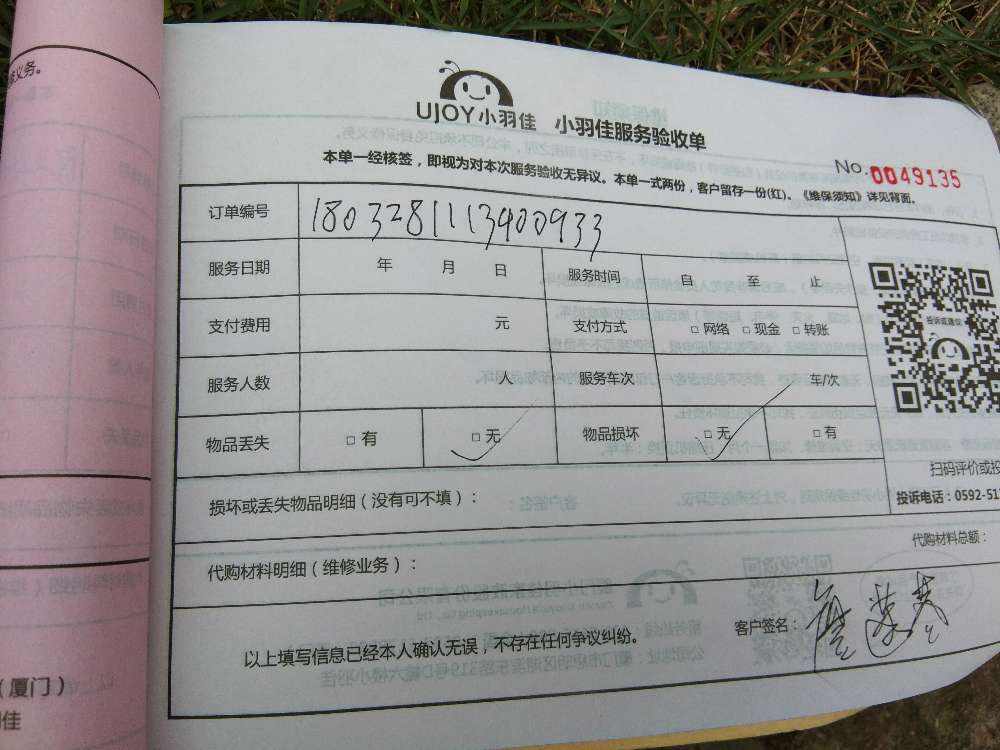 务。
UJOY小羽佳 小羽佳服务验收单
No.0049135
本单一经核签，即视为对本次服务验收无异议。本单一式两份，客户留存一份(红)。《维保须知》详见背面。
订单编号 1803281113400933
服务日期 年 月 日 服务时间 自 至 止
支付费用 元 支付方式 □ 网络 □ 现金 □ 转账
投诉或建议
服务人数 人 服务车次 车/次
物品丢失 □ 有 □ 无 物品损坏 □ 无 □ 有
扫码评价或投
损坏或丢失物品明细（没有可不填）：
投诉电话：0592-51
代购材料总额：
代购材料明细（维修业务）：
客户签名：
以上填写信息已经本人确认无误，不存在任何争议纠纷。
（厦门）
佳